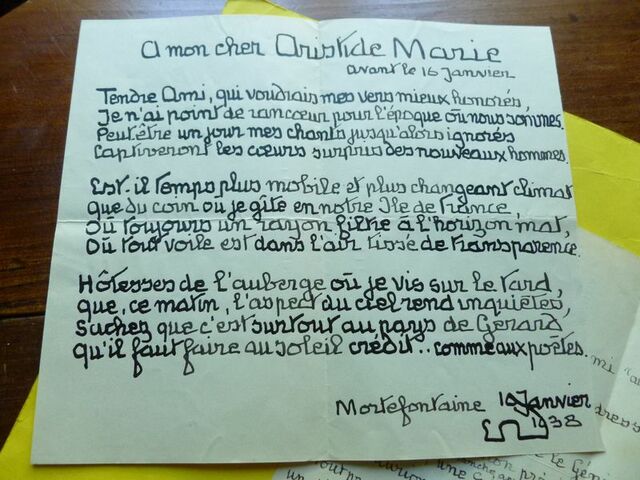 A mon cher Aristide Marie
avant le 16 Janvier
Tendre Ami, qui voudrais mes vers mieux honorés,
Je n'ai point de rancœur pour l'époque où nous sommes.
Peut être un jour mes chants jusqu'alors ignorés
Captiveront les cœurs surpris des nouveaux hommes.
Est-il temps plus mobile et plus changeant climat
que du coin où je gîte en notre Ile de France,
Où toujours un rayon filtre à l'horizon mat,
Où tout voile est dans l'air tissé de transparence.
Hôtesses de l'auberge où je vis sur le tard,
que, ce matin, l'aspect du ciel rend inquiètes,
Sachez que c'est surtout au pays de Gérard
qu'il faut faire au soleil crédit.. comme aux poètes.
Mortefontaine 16 Janvier
1938
mi
dress
le Géni
une